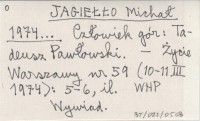 0
JAGIEŁŁO Michał
1974... Człowiek gór: Ta-
deusz Pawłowski. – Życie
Warszawy nr 59 (10-11 III
1974): 5-6, il. WHP
Wywiad.